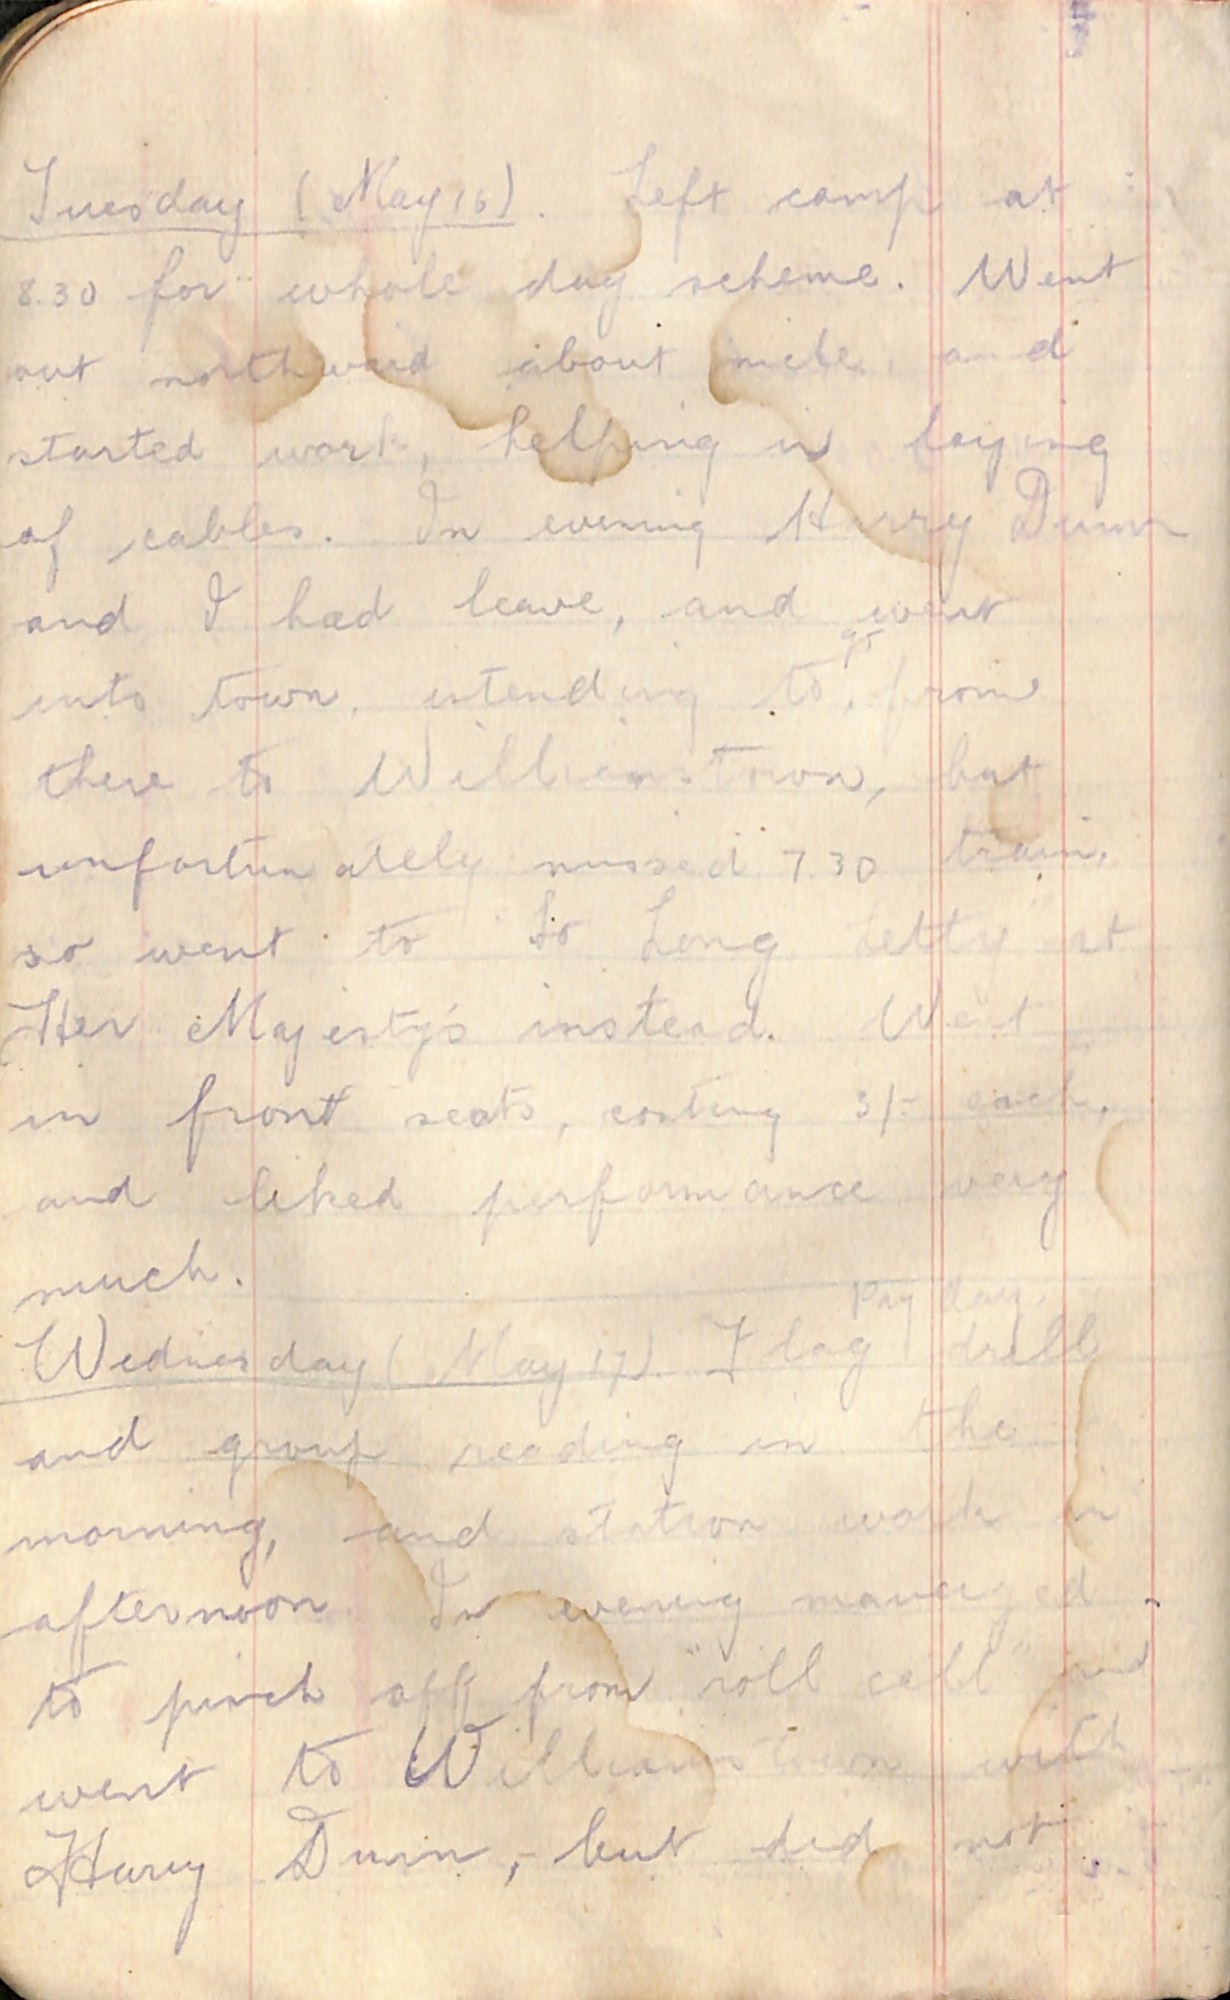 Tuesday (May 16). Left camp at
8.30 for whole day scheme. Went
out northward about mile, and
started work, helping in laying
of cables. In evening Harry Dunn
and I had leave, and went
into town, intending to go from
there to Williamstown, but
unfortunately missed 7.30 train,
so went to So Long Letty at
Her Majesty's instead. Went
in front seats, costing 3/- each,
and liked performance very
much.
Pay day.
Wednesday (May 17) Flag drill
and group reading in the
morning, and station work in
afternoon. In evening managed
to pinch off from "roll call" and
went to Williamstown with
Harry Dunn, but did not